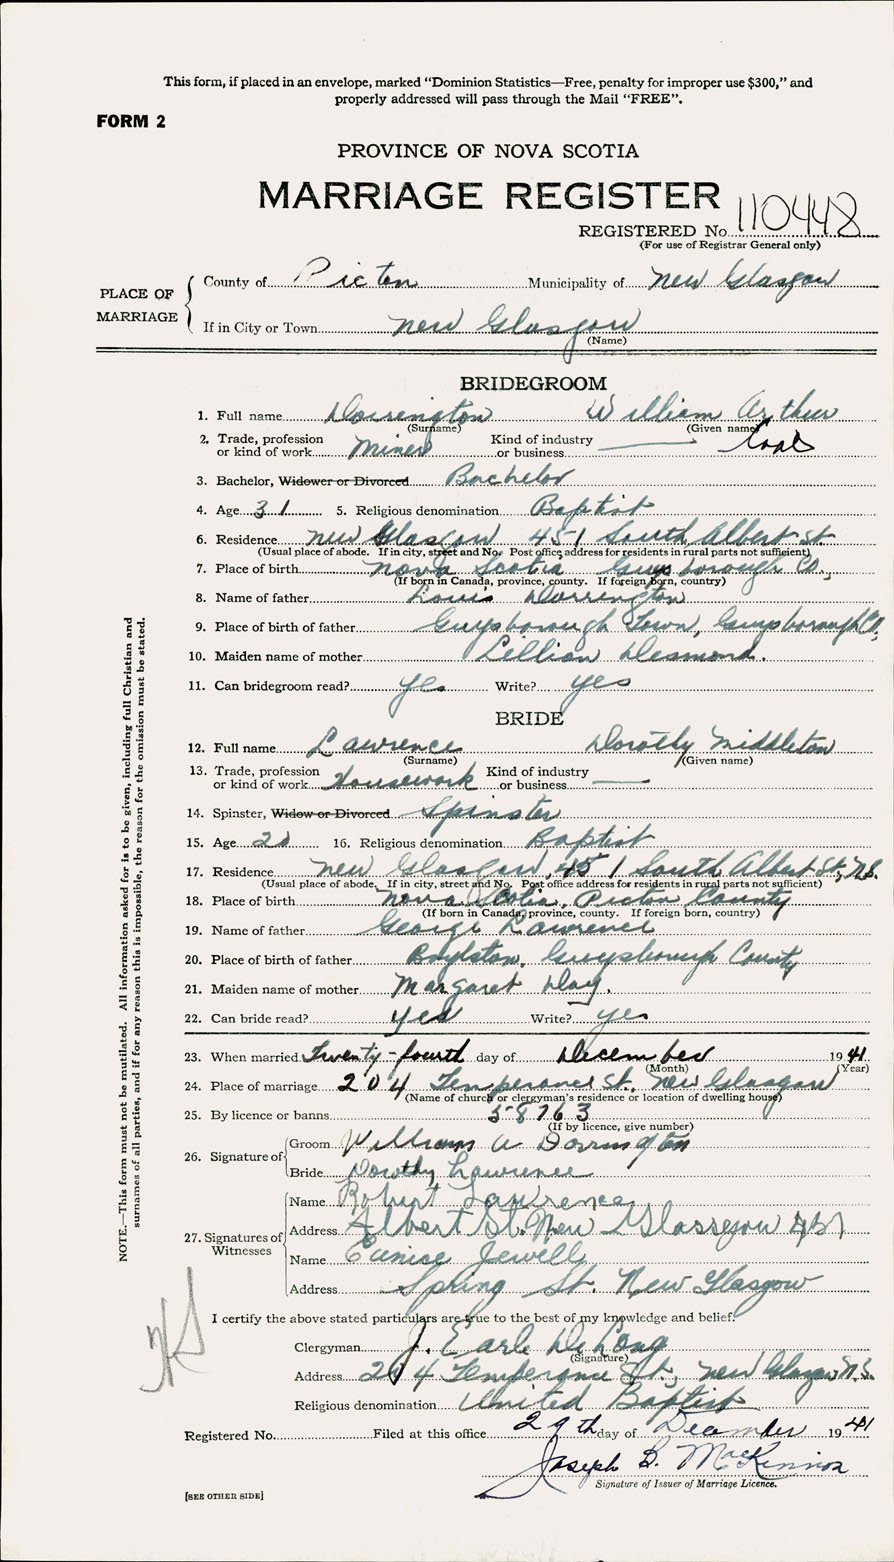 This form, if placed in an envelope, marked "Dominion Statistics—Free, penalty for improper use $300," and
properly addressed will pass through the Mail "FREE".
FORM 2
PROVINCE OF NOVA SCOTIA
MARRIAGE REGISTER
REGISTERED No. 110448
(For use of Registrar General only)
PLACE OF MARRIAGE
County of Picton Municipality of New Glasgow
If in City or Town New Glasgow
(Name)
BRIDEGROOM
1. Full name Dorrington William Arthur
(Surname) (Given name)
2. Trade, profession or kind of work Miner Kind of industry or business Coal
3. Bachelor, Widower or Divorced Bachelor
4. Age 31 5. Religious denomination Baptist
6. Residence New Glasgow 451 South Albert St
(Usual place of abode. If in city, street and No. Post office address for residents in rural parts not sufficient)
7. Place of birth Nova Scotia Guysborough Co.,
(If born in Canada, province, county. If foreign born, country)
8. Name of father Louis Dorrington
9. Place of birth of father Guysborough Town, Guysborough Co,
10. Maiden name of mother Lillian Desmond.
11. Can bridegroom read? yes Write? yes
BRIDE
12. Full name Lawrence Dorothy Middleton
(Surname) (Given name)
13. Trade, profession or kind of work Housework Kind of industry or business
14. Spinster, Widow or Divorced Spinster
15. Age 16. Religious denomination Baptist
17. Residence New Glasgow, 451 South Albert St, N.S.
(Usual place of abode. If in city, street and No. Post office address for residents in rural parts not sufficient)
18. Place of birth Nova Scotia, Picton County
(If born in Canada, province, county. If foreign born, country)
19. Name of father George Lawrence
20. Place of birth of father Boylston, Guysborough County
21. Maiden name of mother Margaret Day.
22. Can bride read? yes Write? yes
23. When married Twenty-fourth day of December 1941
(Month) (Year)
24. Place of marriage 204 Temperance St. New Glasgow
(Name of church or clergyman's residence or location of dwelling house)
25. By licence or banns 58763
(If by licence, give number)
26. Signature of Groom William A Dorrington
Bride Dorothy Lawrence
27. Signatures of Witnesses
Name Robert Lawrence
Address Albert St. New Glassgow 451
Name Eunice Jewell
Address Spring St. New Glasgow
I certify the above stated particulars are true to the best of my knowledge and belief.
Clergyman J. Earle DeLong
(Signature)
Address 204 Temperance St., New Glasgow, N.S.
Religious denomination United Baptist
Registered No. Filed at this office 29th day of December 1941
Joseph B. MacKinnon
Signature of Issuer of Marriage Licence.
[SEE OTHER SIDE]
NOTE.—This form must not be mutilated. All information asked for is to be given, including full Christian and
surnames of all parties, and if for any reason this is impossible, the reason for the omission must be stated.